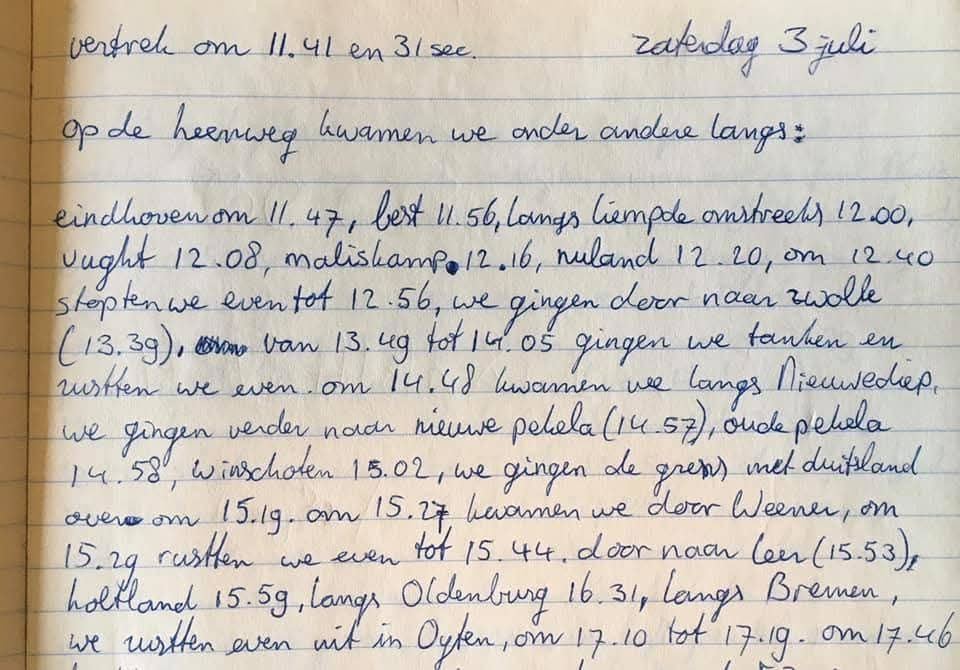 vertrek om 11.41 en 31 sec. zaterdag 3 juli
op de heenweg kwamen we onder andere langs:
eindhoven om 11.47, best 11.56, langs liempde omstreeks 12.00,
vught 12.08, maliskamp 12.16, nuland 12.20, om 12.40
stopten we even tot 12.56, we gingen door naar zwolle
(13.39), van 13.49 tot 14.05 gingen we tanken en
rustten we even. om 14.48 kwamen we langs Nieuwediep,
we gingen verder naar nieuwe pekela (14.57), oude pekela
14.58, winschoten 15.02, we gingen de grens met duitsland
over om 15.19. om 15.27 kwamen we door Weener, om
15.29 rustten we even tot 15.44. door naar leer (15.53),
holtland 15.59, langs Oldenburg 16.31, langs Bremen,
we rustten even uit in Oyten, om 17.10 tot 17.19. om 17.46